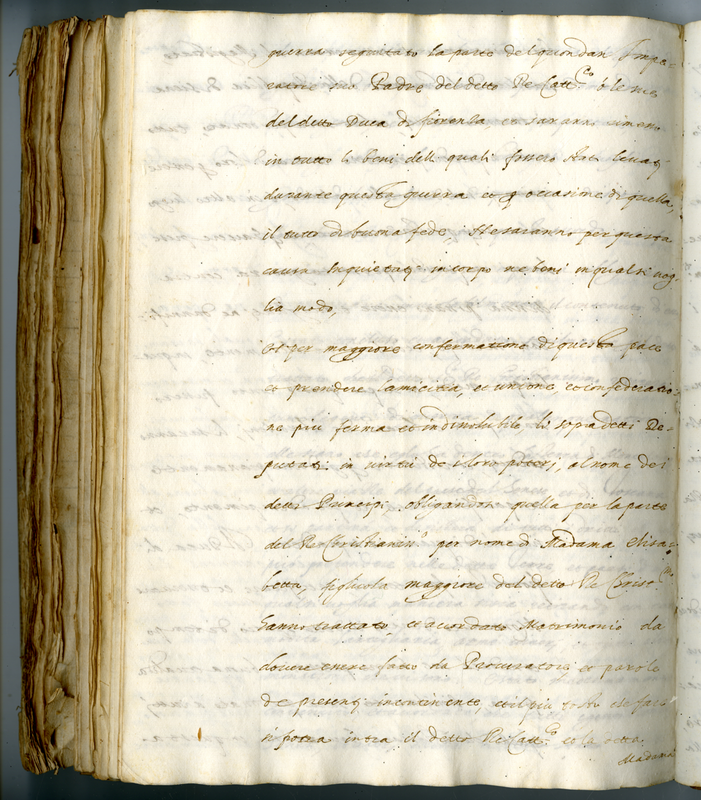 guerra seguitato la parte del quondam Impe-
ratore suo Padre del detto Re Catt.co ò le me
del detto Duca di fiorenza, et saranno
in tutto li beni delli quali fossero stati levati
durante questa guerra et p occasione di quella,
il tutto di buona fede, Ne saranno per questa
causa Inquietati in corpo ne beni in qual si vog-
lia modo,
Et per maggiore confermatione di questa pace
et prendere lamicitia, et unione, et confederatio-
ne più ferma et indissolubile li sopradetti De-
putati in virtù de i loro poteri, al nome dei
detti Principi obligandosi quella per la parte
del Re Christianiss.o per nome di Madama Elisa-
betta, figliuola maggiore del detto Re Christ.mo
hanno trattato, et acordato Matrimonio da
dovere essere fatto da Procuratori, et parole
de presenti incontinente, et il più tosto che far
si potra intra il detto Re Catt.co et la detta
Madama